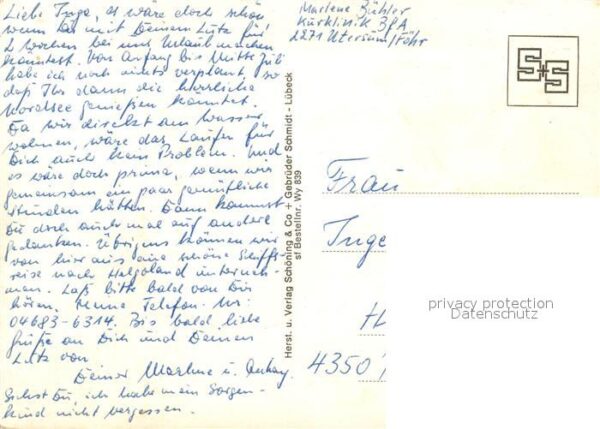 Liebe Inge, es wäre doch schön
wenn Du mit Deinem Lutz für
2 Wochen bei uns Urlaub machen
könntest. Von Anfang bis Mitte Juli
habe ich noch nichts verplant, so
daß Ihr dann die herrliche
Nordsee genießen könntet.
Da wir direkt am Wasser
wohnen, wäre das Laufen für
Dich auch kein Problem. Und
es wäre doch prima, wenn wir
gemeinsam ein paar gemütliche
Stunden hätten. Dann kommst
Du doch auch mal auf andere
Gedanken. Übrigens können wir
von hier aus eine schöne Schiffs-
reise nach Helgoland unterneh-
men. Laß bitte bald von Dir
hören. Meine Telefon. Nr:
04683-6314. Bis bald, liebe
Grüße an Dich und Deinen
Lutz von
Deiner Marlene u.
Siehst Du, ich habe mein Sorgen-
kind nicht vergessen.
Herst. u. Verlag Schöning & Co + Gebrüder Schmidt - Lübeck
sf Bestellnr. Wy 839
Marlene Bühler
Kurklinik BfA
2271 Utersum/Föhr
S+S
Frau
Inge
H
4350
privacy protection
Datenschutz